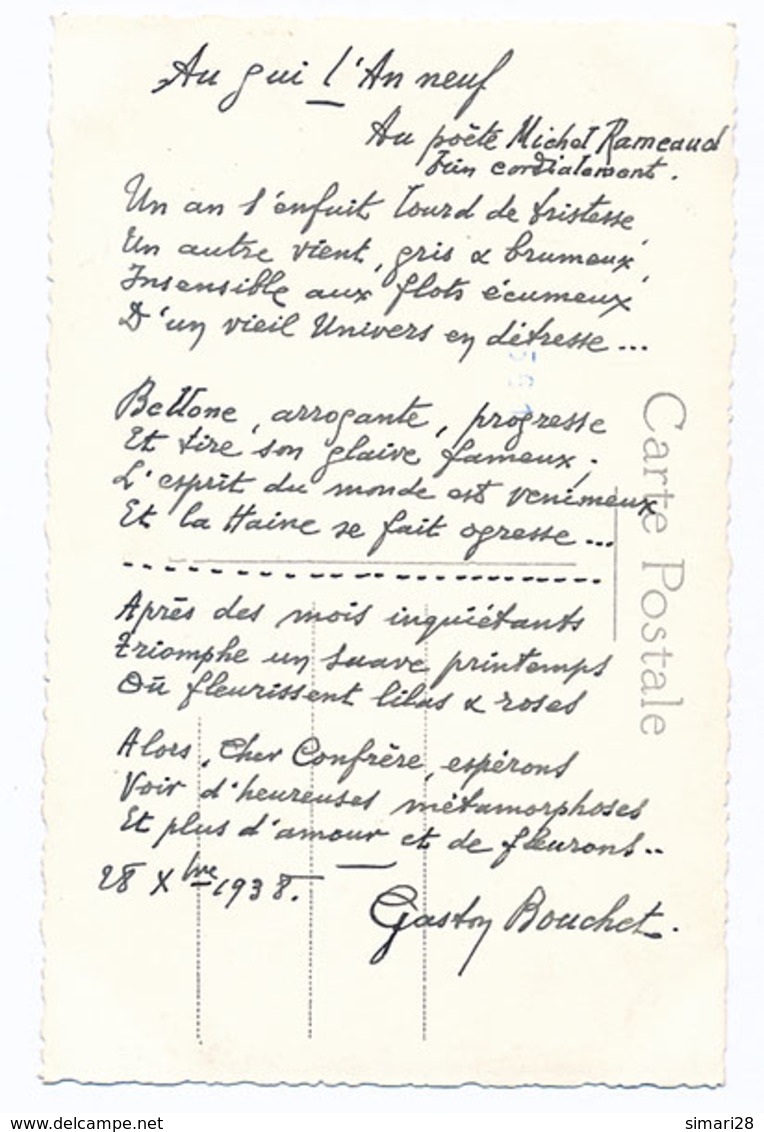 Au gui l'An neuf
Au poëte Michel Rameaud
bien cordialement.
Un an s'enfuit lourd de tristesse,
Un autre vient, gris & brumeux,
Insensible aux flots écumeux
D'un vieil Univers en détresse...
Bellone, arrogante, progresse
Et tire son glaive fameux;
L'esprit du monde est venimeux
Et la Haine se fait ogresse...
Après des mois inquiétants
Triomphe un suave printemps
Où fleurissent lilas & roses
Alors, Cher Confrère, espérons
Voir d'heureuses métamorphoses
Et plus d'amour et de fleurons..
28 Xbre 1938.
Gaston Bouchet.
Carte Postale
delcampe.net
simari28